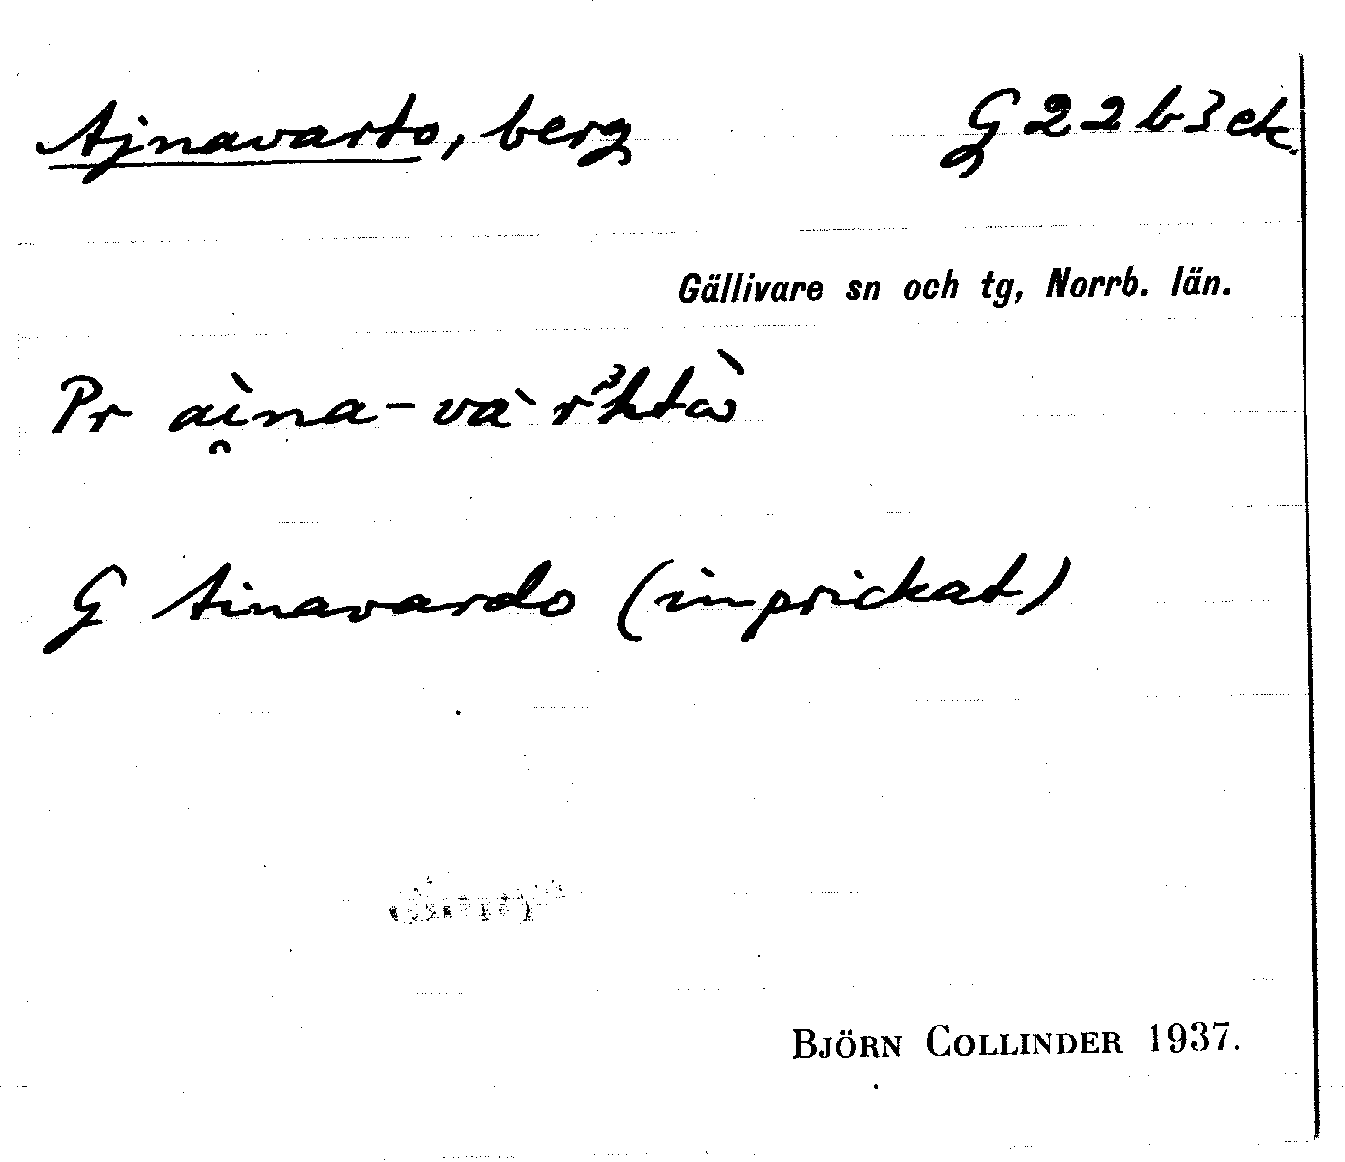 Ajnavarto, berg G 22 b 3 ek.
Gällivare sn och tg, Norrb. län.
Pr aì̯na-và rᵌhtὼ
G Ainavardo (inprickat)
BJÖRN COLLINDER 1937.